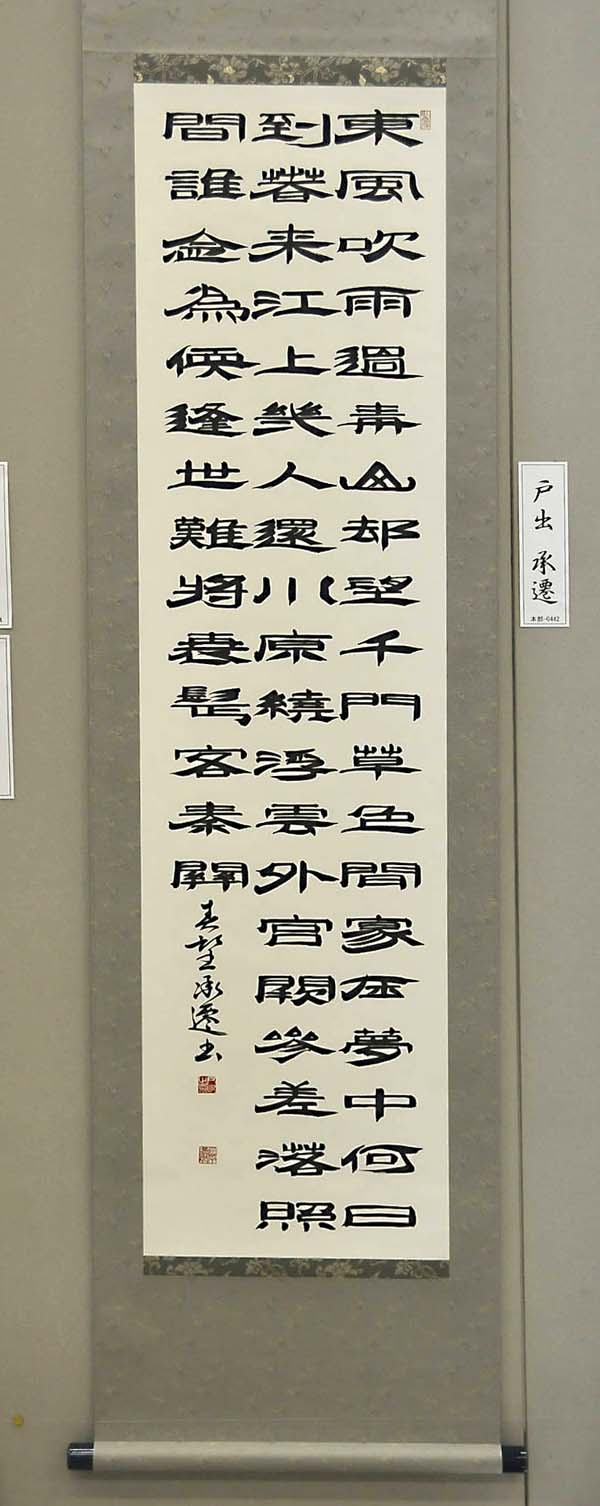 東風吹雨過青山却望千門草色間家在夢中何日
到春来江上幾人還川原繞浮雲外宮闕參差落照
間誰念為偄逢世難将衰鬢客秦關
春望承遷書
戸出 承遷
本部-0442